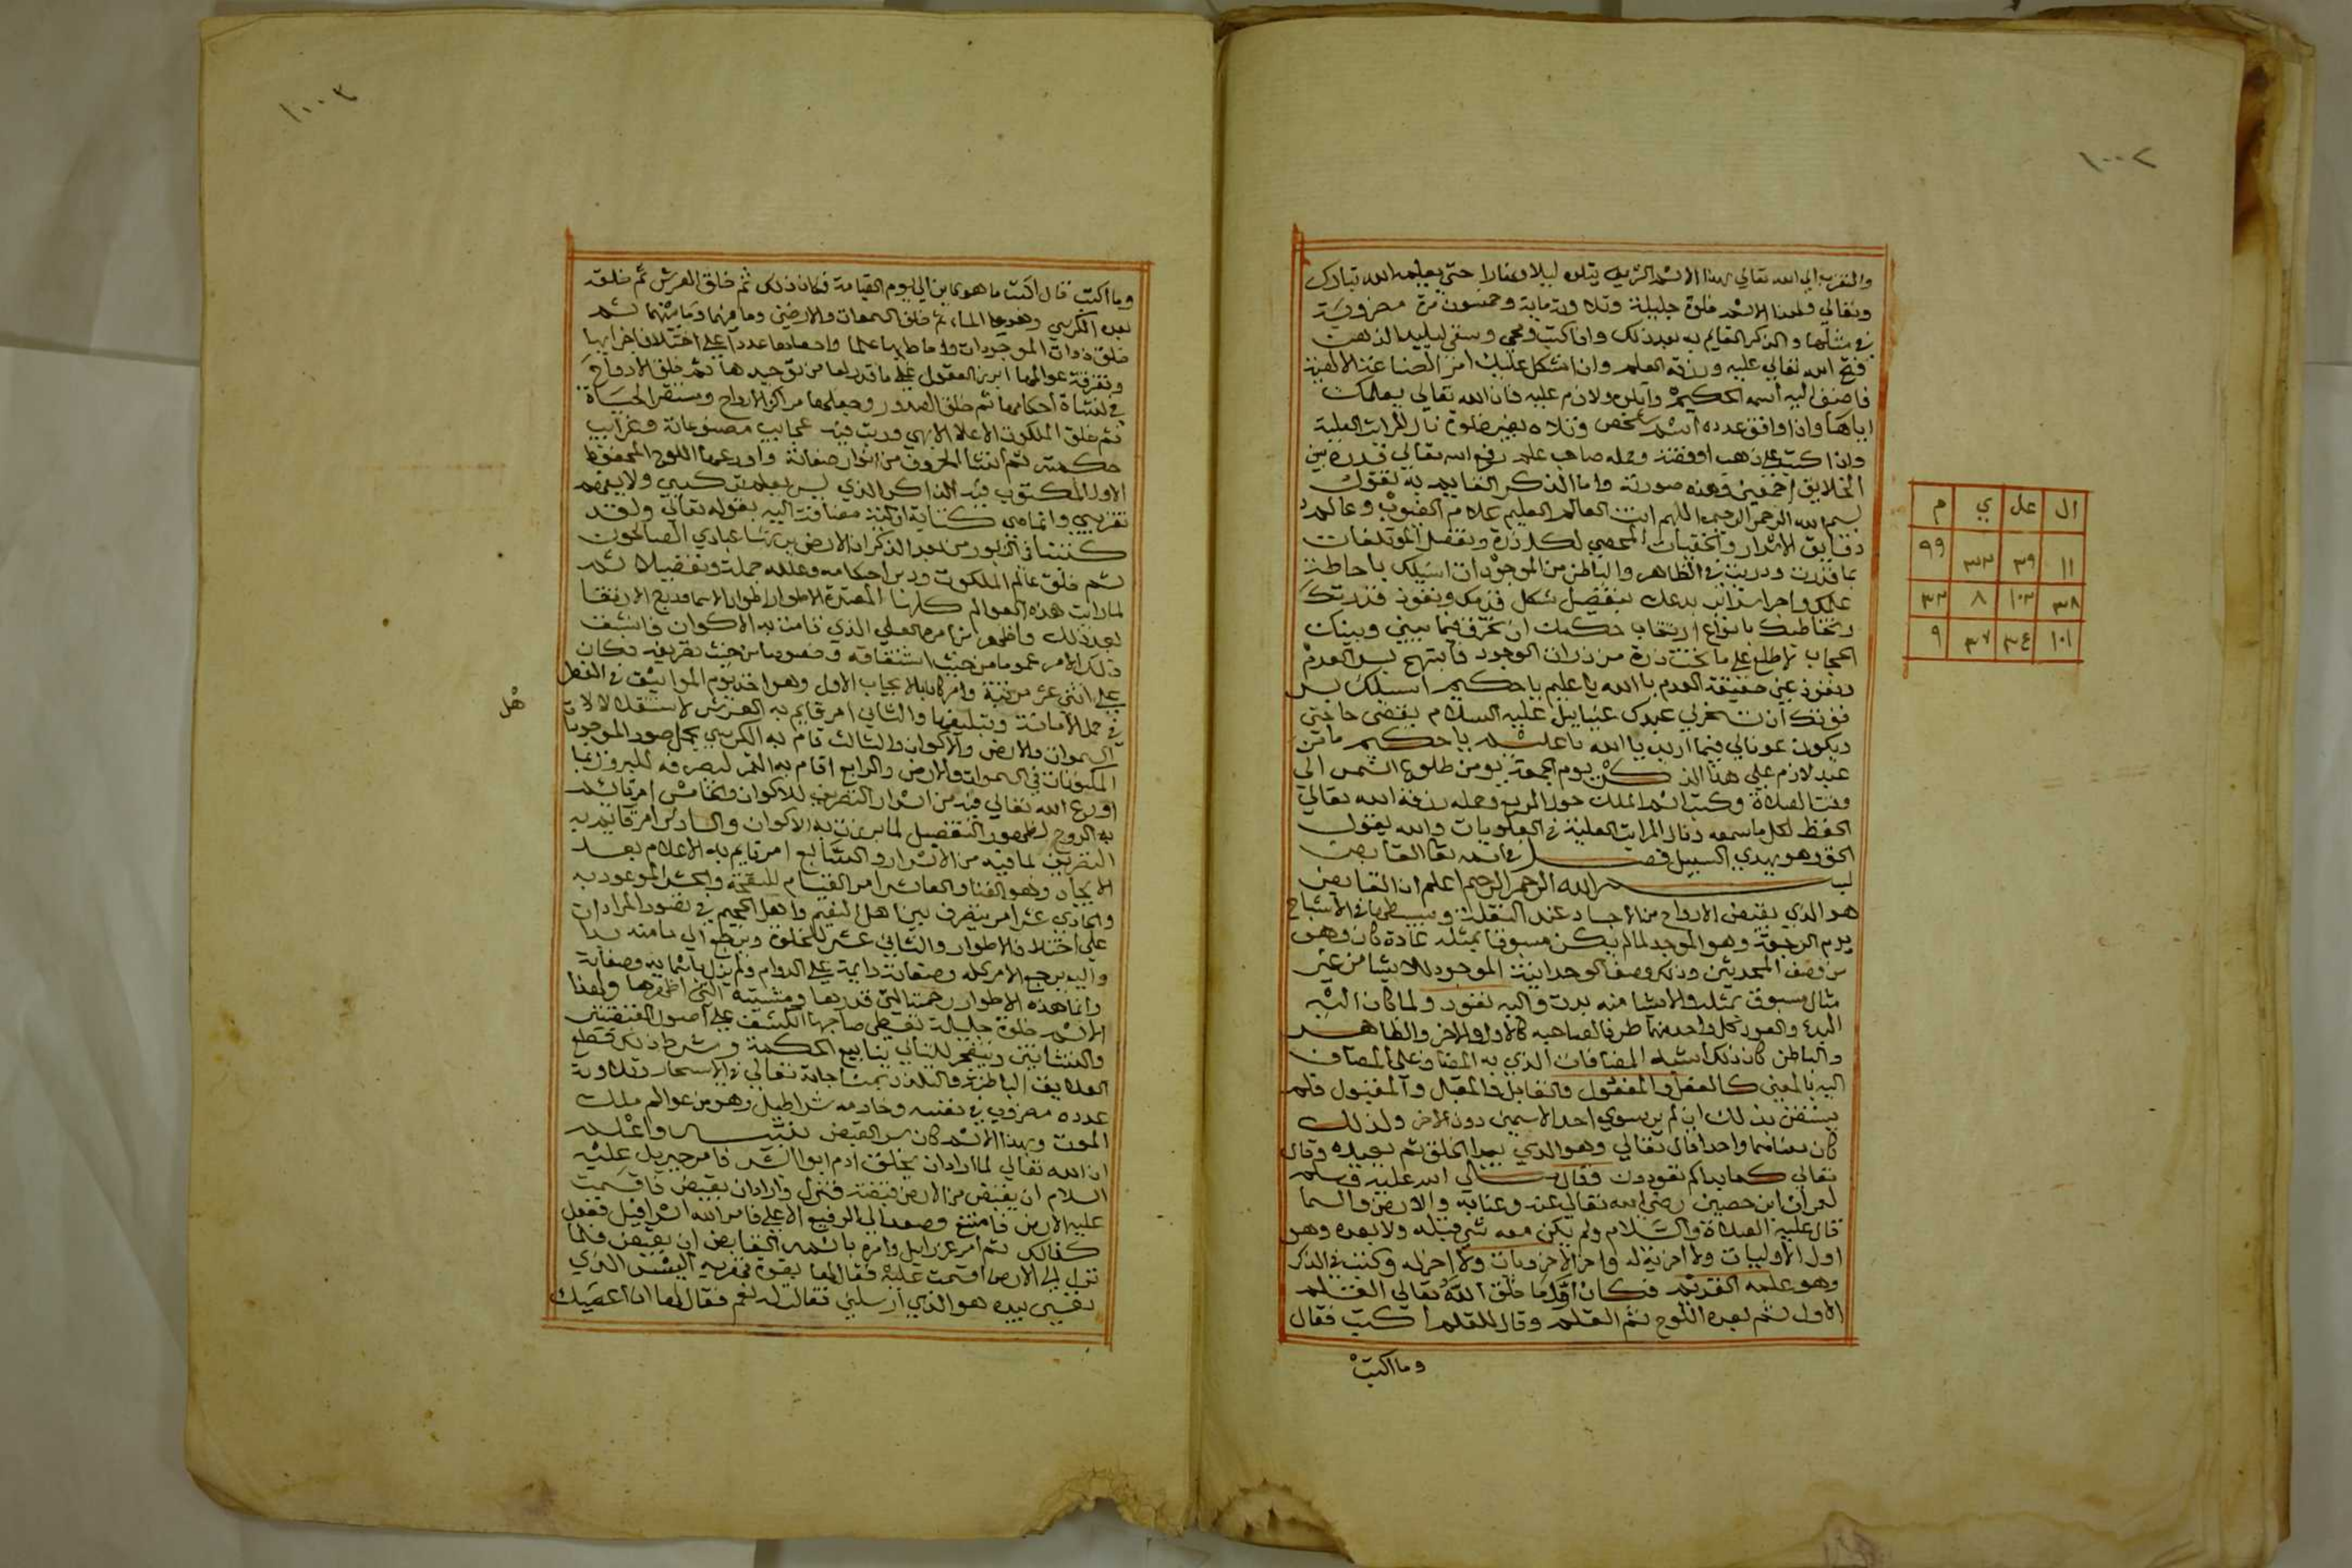 ١٠٠٢
والتقرب الي الله تعالي بهذا الاسم الشريف يتلوه ليلا ونهارا حتي يعلمه الله تبارك
وتعالي ولهذا الاسم خلوة جليلة وتلاوته ماية وخمسون مرة مضروبة
في مثلها والذكر القايم به بعد ذلك واذا كتب ومحي وسقي لبليد الذهن
فتح الله تعالي عليه ورزقه العلم وان اشكل عليك امر الصناعة الالهية
فاضف اليه اسمه الحكيم واتلوه ولازم عليه فان الله تعالي يعلمك
اياها واذا وافق عدده اسم شخص وتلاه بغير خلوة نال المراتب العلية
واذا كتب علي ذهب اوفضة وحمله صاحب علم رفع الله تعالي قدره بين
الخلايق اجمعين وهذه صورته واما الذكر القايم به تقول
بسم الله الرحمن الرحيم اللهم انت العالم العليم علام الغيوب وعالم
دقايق الاسرار والخفيات المحصي لكل ذرة وتفصل المؤتلفات
بما قدرت ودبرت في الظاهر والباطن من الموجودات اسيلك باحاطة
علمك
ان تخرق فيما بيني وبينك
الحجاب لاطلع علي ما تحت ذرة من ذرات الوجود فابتهج بسر العدم
ونفوذ عين حقيقة العدم يا الله يا عليم يا حكيم اسيلك بسر
قوتك ان تسخر لي عبدك عنيابيل عليه السلام يقضي حاجتي
ويكون عونا لي فيما اريد يا الله يا عليم يا حكيم ما من
عبد لازم علي هذا الذكر يوم الجمعة من طلوع الشمس الي
وقت الصلاة وكتب اسم الملك حول المربع وحمله رزقه الله تعالي
الحفظ لكل ما سمعه ونال المراتب العلية في العلويات والله يقول
الحق وهو يهدي السبيل فصل في اسمه تعا القابض
بسم الله الرحمن الرحيم اعلم ان القابض
هو الذي يقبض الارواح من الاجساد عند النقلة ويبسطها في الاشباح
يوم الرجفة وهو الموجد لما لم يكن مسبوقا بمثله عادة كان وهو
من وصف المحدثين وذلك وصف الوحدانية الموجود للاشيا من غير
مثال مسبوق بمثله والاشيا منه بدت واليه تعود ولما كان اليه
البدء والعود كل واحد منهما طرفا لصاحبه كالاول والاخر والظاهر
والباطن كان ذلك اشبه المضافات الذي به المضاف علي المضاف
اليه بالمعني كالعقل والمعقول والقابل والمقبال والمقبول فلم
يستغن بذلك ان لم ير سوي احد الاسمين دون الاخر ولذلك
كان معناهما واحد اقال تعالي وهو الذي يبدا الخلق ثم يعيده وقال
تعالي كما بداكم تعودون فقال صلي الله عليه وسلم
لعمران ابن حصين رضي الله تعالي عنه وعنا به والارض والسما
قال عليه الصلاة والسلام ولم يكن معه شي قبله ولا بعده وهو
اول الاوليات ولا اخرية له واخر الاخرويات ولا اخر له وكتب في الذكر
وهو علمه القديم فكان اول ما خلق الله تعالي القلم
الاول ثم بعده اللوح ثم القلم وقال للقلم اكتب فقال
وما اكتب
ال عل ي م
١١ ٣٩ ٣٣ ٩٩
٣٨ ١٠٣ ٨ ٣٣
١٠١ ٣٤ ٣٧ ٩
١٠٠٣
وما اكتب قال اكتب ما هو كاين الي يوم القيامة فكان ذلك ثم خلق العرش ثم خلقه
بعده الكرسي وهو علي الماء ثم خلق السموات والارضين وما فيهما وما بينهما ثم
خلق ذوات الموجودات واحاط بها علما واحصاها عددا علي اختلاف اجزايها
وتفرقة عوالمها ابرز العقول علي ما قدر لها من توحيدها ثم خلق الارواح
في نشاة احكامها ثم خلق الصدور وجعلها مراكز الارواح ومستقر الحياة
ثم خلق الملكوت الاعلا الابهي ورتب فيه عجايب مصنوعاته وغرايب
حكمته ثم انشا الحروف من انوار صفاته واودعها اللوح المحفوظ
الاول المكتوب فيه الذاكر الذي ليس بعلم تركيبي ولا بفهم
تقريبي وانما هي كناية ازلية مضافة اليه بقوله تعالي ولقد
كتبنا في الزبور من بعد الذكر ان الارض يرثها عبادي الصالحون
ثم خلق عالم الملكوت ودبر احكامه وعلله جملة وتفصيلا ثم
لما رايت هذه العوالم كلها
بعد ذلك واظهر الامر العلي الذي قامت به الاكوان فانشقت
ذلك الامر عموما من حيث اشتقاقه وخصوصا من حيث تصريفه فكان
علي اثني عشر مرتبة وامر كان بالايجاب الاول وهو اخذ يوم المواثيق في الفطر
في حمل الامانة وتبليغها والثاني امر قايم به العرش لاستقلالات
السموات والارض والاكوان والثالث قام به الكرسي يحمل صور الموجودات
المكونات في السموات والارض والرابع اقام به القمر ليصرفه
اودع الله تعالي فيه من اسرار التصريف للاكوان والخامس امر قايم
به الروح لظهور التفصيل لما برزت به الاكوان والسادس امر قايم به
التصريف لما فيه من الاسرار والسابع امر قايم به الاعلام بعد
الايجاد وهو الفنا والعاشر امر القيام للنفخة والحشر الموعود به
والحادي عشر امر يتصرف بين اهل النعيم واهل الجحيم في نفوذ المرادات
علي اختلاف الاطوار والثاني عشر للخلق ويرجع الي ما منه بدا
واليه يرجع الامر كله وصفاته دايمة علي الدوام ولم يزل باسمايه وصفاته
وانما هذه الاطوار رحمته التي قدرها ومشيته التي اظهرها ولهذا
الاسم خلوة جليلة تعطي صاحبها الكشف علي اصول القبضتين
والنشاتين ويتفجر للتالي ينابيع الحكمة وشرط ذلك قطع
العلايق الباطنة والتلذذ بمناجاته تعالي في الاسحار وتلاوته
عدده مضروب في نفسه وخادمه شراطيل وهو من عوالم ملك
الموت وبهذا الاسم كان سر القبض تنبيه واعلم
ان الله تعالي لما اراد ان يخلق ادم ابو البشر فامر جبريل عليه
السلام ان يقبض من الارض قبضة فنزل واراد ان يقبض فاقسمت
عليه الارض فامتنع وصعد الي الرفيع الاعلي فامر الله اسرافيل ففعل
كذالك ثم امر عزرايل وامره باسمه القابض ان يقبض فلما
نزل الي الارض اقسمت عليه فقال لها بقوة قهرية اليس الذي
نفسي بيده هو الذي ارسلني فقالت له نعم فقال لها انا اعصيك
هل